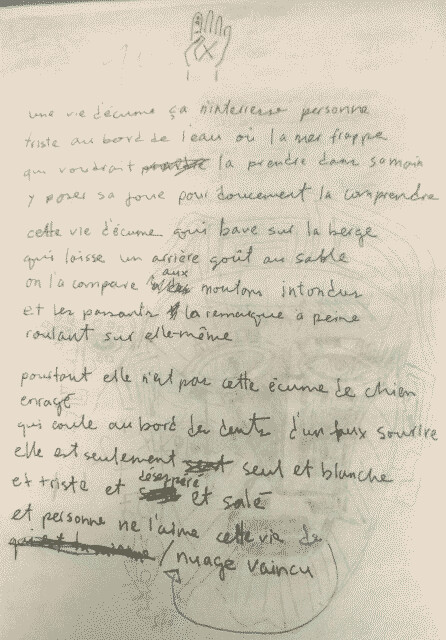 une vie d'écume ça n'interresse personne
triste au bord de l'eau où la mer frappe
qui voudrait la prendre dans sa main
y poser sa joue pour doucement la comprendre
cette vie d'écume qui bave sur la berge
qui laisse un arrière goût au sable
on la compare aux moutons intondus
et les passants la remarque à peine
roulant sur elle-même
pourtant elle n'est pas cette écume de chien
enragé
qui coule au bord des dents d'un faux sourire
elle est seulement seul et blanche
et triste et désespéré et salé
et personne ne l'aime cette vie de
/nuage vaincu